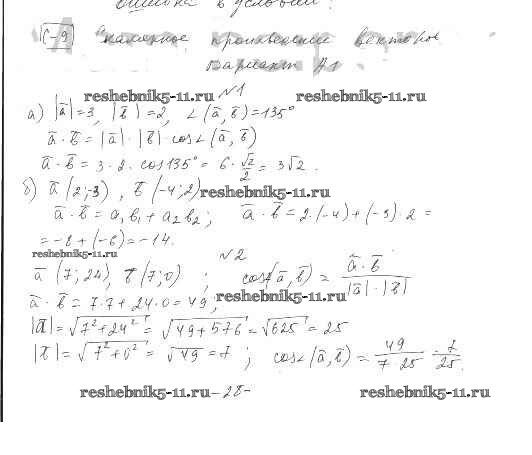 ошибка в условии.
С-9 Скалярное произведение векторов
Вариант А1
reshebnik5-11.ru №1 reshebnik5-11.ru
а) |a̅|=3, |b̅|=2, ∠(a̅,b̅)=135°
a̅·b̅=|a̅|·|b̅|·cos∠(a̅,b̅)
a̅·b̅=3·2·cos135°=6·√2/2=3√2.
б) a̅(2;-3), b̅(-4;2) reshebnik5-11.ru
a̅·b̅=a₁b₁+a₂b₂; a̅·b̅=2·(-4)+(-3)·2=
=-8+(-6)=-14.
reshebnik5-11.ru №2
a̅(7;24), b̅(7;0); cos∠(a̅,b̅)=a̅·b̅/|a̅|·|b̅|
a̅·b̅=7·7+24·0=49, reshebnik5-11.ru
|a̅|=√7²+24²=√49+576=√625=25
|b̅|=√7²+0²=√49=7; cos∠(a̅,b̅)=49/7·25=7/25.
reshebnik5-11.ru -28- reshebnik5-11.ru